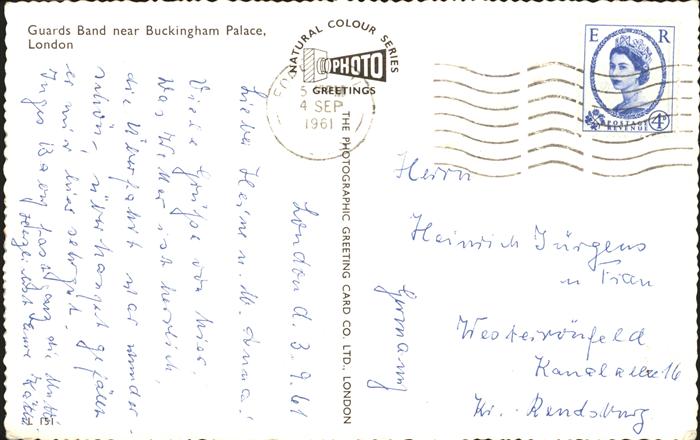 Guards Band near Buckingham Palace,
London
NATURAL COLOUR SERIES
PHOTO
GREETINGS
4 SEP
1961
E R
POSTAGE
REVENUE
4D
THE PHOTOGRAPHIC GREETING CARD CO. LTD., LONDON
London d. 3.9.61
Lieber Heine u. M. Anna!
Viele Grüße von hier.
Das Wetter ist herrlich,
die Überfahrt war wunder-
schön, überhaupt gefällt
es mir hier sehr gut.
Inges Baby fast ganz die Mutti
Herrn
Heinrich Jürgens
u Frau
Westerrönfeld
Kanalallee 16
Kr. Rendsburg
Germany
L 151